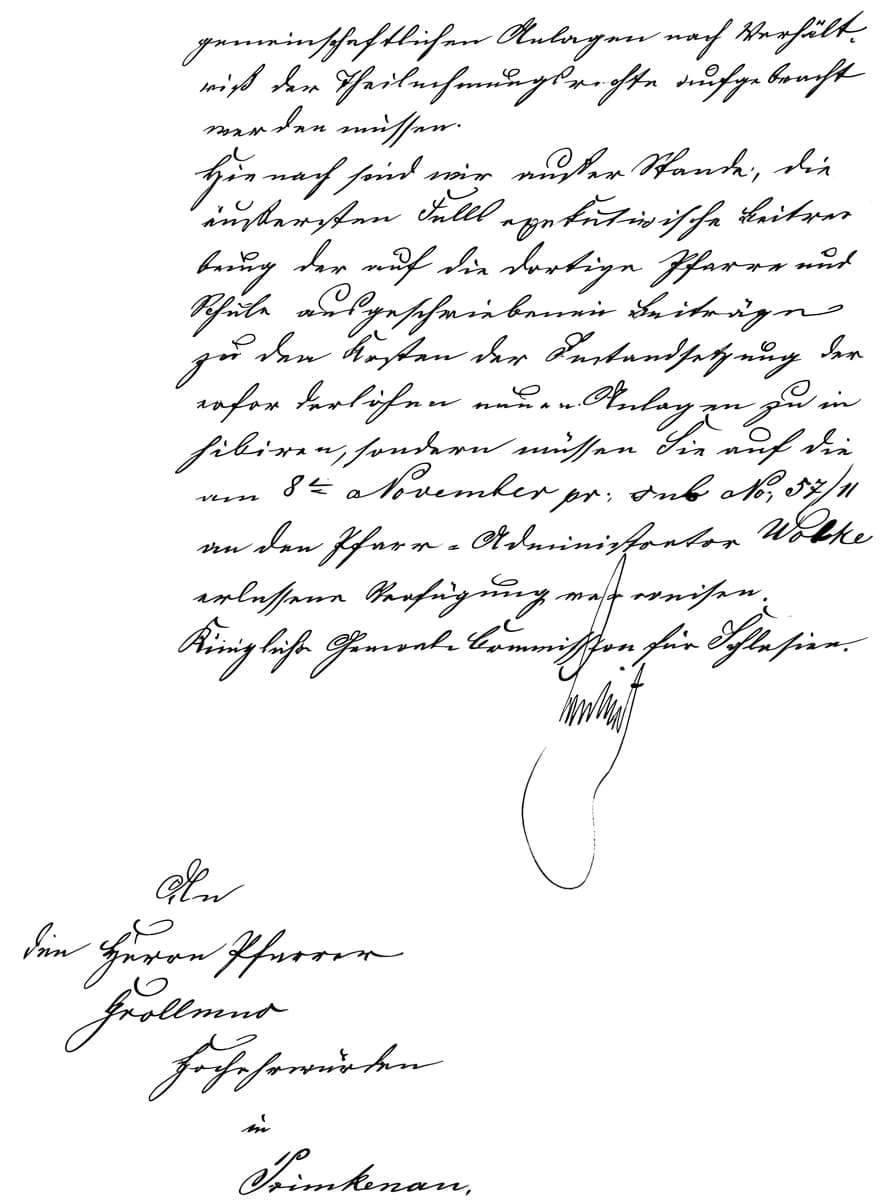 gemeinschaftlichen Anlagen nach Verhält-
niß der Theilnehmungsrechte aufgebracht
werden müssen.
Hienach sind wir außer Stande, die
äußersten Falls exekutivische Beitrei
bung der auf die dortige Pfarre und
Schule ausgeschriebenen Beiträge
zu den Kosten der Instandsetzung der
erforderlichen neuen Anlagen zu in
hibiren, sondern müssen Sie auf die
am 8t November pr: sub No: 57/11
an den Pfarr-Administrator Wolke
erlassene Verfügung verweisen.
Königliche General-Commission für Schlesien.
An
den Herrn Pfarrer
Hochehrwürden
in
Primkenau.